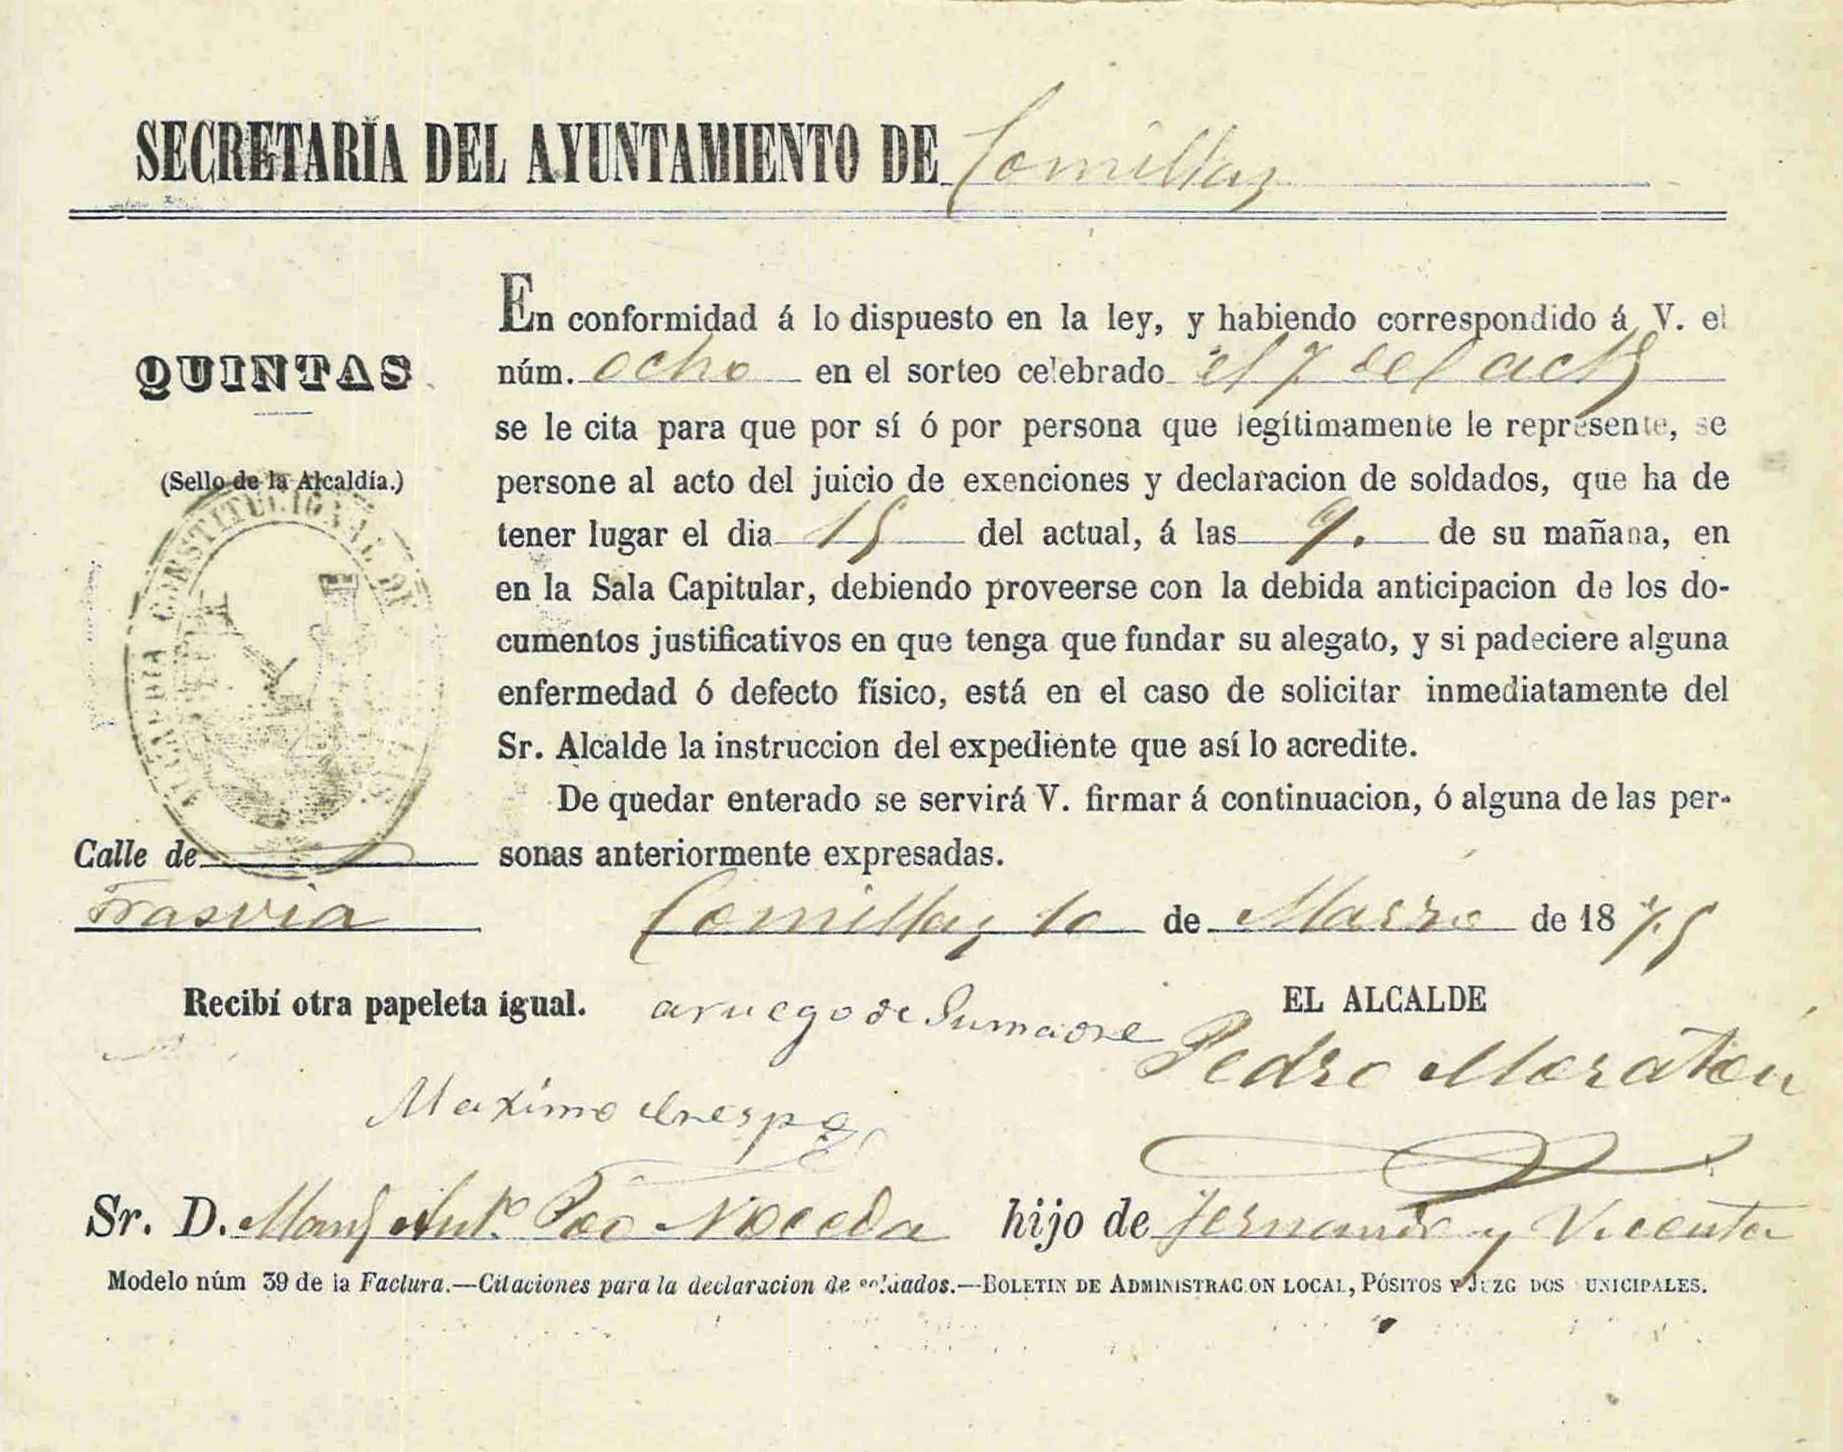 SECRETARÍA DEL AYUNTAMIENTO DE Comillas
QUINTAS
(Sello de la Alcaldía.)
ALCALDIA CONSTITUCIONAL DE
En conformidad á lo dispuesto en la ley, y habiendo correspondido á V. el
núm. ocho en el sorteo celebrado el 7 del actl
se le cita para que por sí ó por persona que legítimamente le represente, se
persone al acto del juicio de exenciones y declaracion de soldados, que ha de
tener lugar el dia 15 del actual, á las 9. de su mañana, en
en la Sala Capitular, debiendo proveerse con la debida anticipacion de los do-
cumentos justificativos en que tenga que fundar su alegato, y si padeciere alguna
enfermedad ó defecto físico, está en el caso de solicitar inmediatamente del
Sr. Alcalde la instruccion del expediente que así lo acredite.
De quedar enterado se servirá V. firmar á continuacion, ó alguna de las per-
sonas anteriormente expresadas.
Calle de
Trasvia
Comillas 10 de Marzo de 1875
Recibí otra papeleta igual.
aruego de Sumadre
Maximo Crespo
EL ALCALDE
Pedro Moratón
Sr. D. Manl Anto. Poo Noceda hijo de Fernando y Vicenta
Modelo núm 39 de la Factura.—Citaciones para la declaracion de soldados.—BOLETIN DE ADMINISTRAC ON LOCAL, PÓSITOS Y JUZG DOS UNICIPALES.